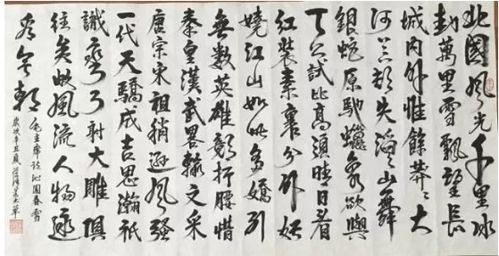 北國風光千里冰
封萬里雪飄望長
城內外惟餘莽々大
河上下頓失滔々山舞
銀蛇原馳蠟象欲與
天公試比高須晴日看
紅裝素裹分外妖
嬈江山如此多嬌引
無數英雄競折腰惜
秦皇漢武略輸文采
唐宗宋祖稍遜風騷
一代天驕成吉思瀚祇
識彎弓射大雕俱
往矣數風流人物還
看今朝
毛主席詞沁園春雪
歲次辛丑夏